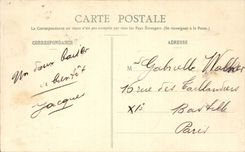 CARTE POSTALE
La Correspondance au recto n'est pas acceptée par tous les Pays Étrangers. (Se renseigner à la Poste.)
CORRESPONDANCE
ADRESSE
Un doux baiser
à bientôt
Jacques
M Gabrielle
16 rue des Taillandiers
XIe Bastille
Paris